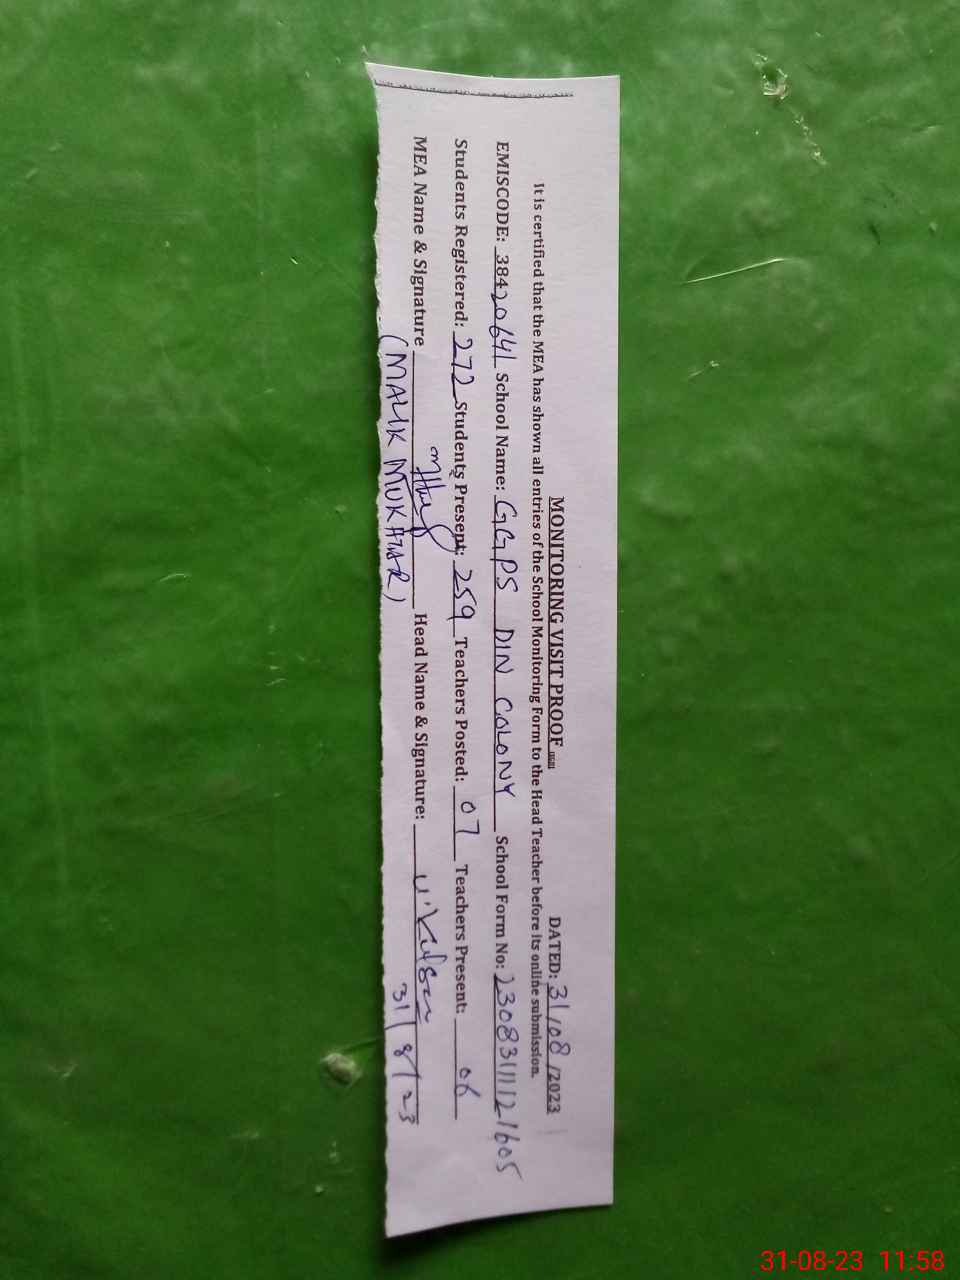 MONITORING VISIT PROOF DATED: 31/08/2023
It is certified that the MEA has shown all entries of the School Monitoring Form to the Head Teacher before its online submission.
EMISCODE: 38420641 School Name: GGPS DIN COLONY School Form No: 23083111121605
Students Registered: 272 Students Present: 259 Teachers Posted: 07 Teachers Present: 06
MEA Name & Signature Head Name & Signature:
(MALIK MUKHTAR) 31/8/23
31-08-23 11:58